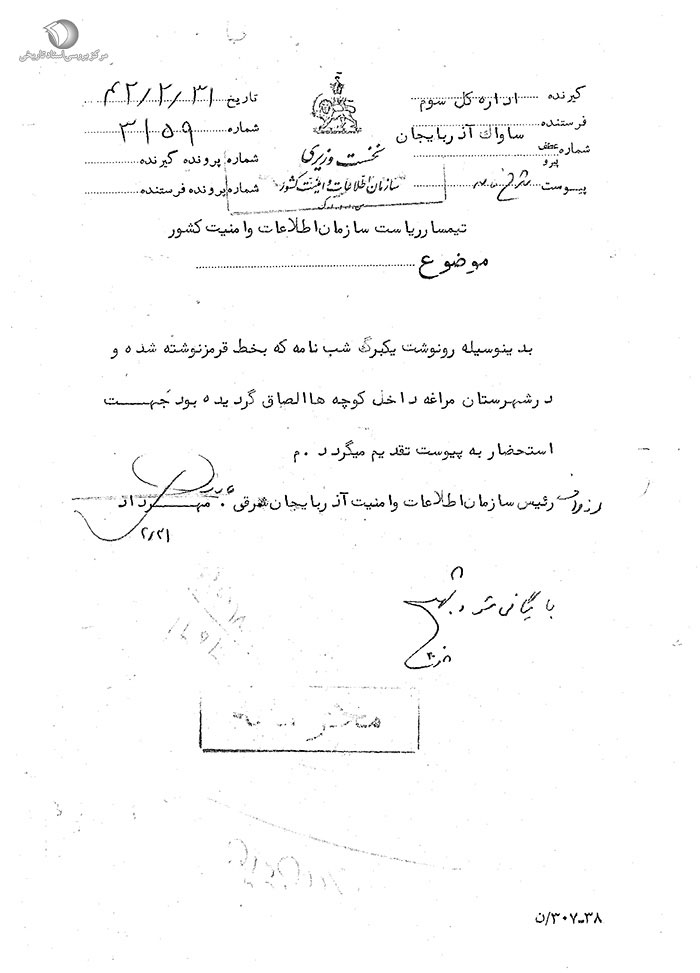 مرکز بررسی اسناد تاریخی
گیرنده اداره کل سوم
فرستنده ساواک آذربایجان
شماره عطف
پیرو
پیوست
نخست وزیری
سازمان اطلاعات و امنیت کشور
س.ا.و.ا.ک
تاریخ ۴۲/۲/۳۱
شماره ۳۱۵۹
شماره پرونده گیرنده
شماره پرونده فرستنده
تیمسار ریاست سازمان اطلاعات و امنیت کشور
موضوع
بدینوسیله رونوشت یکبرگ شب نامه که بخط قرمز نوشته شده و
در شهرستان مراغه داخل کوچه ها الصاق گردیده بود جهت
استحضار به پیوست تقدیم میگردد . م
رئیس سازمان اطلاعات و امنیت آذربایجان شرقی . مهرداد
۲/۳۱
بایگانی شود
۳۰۷-۳۸/ن